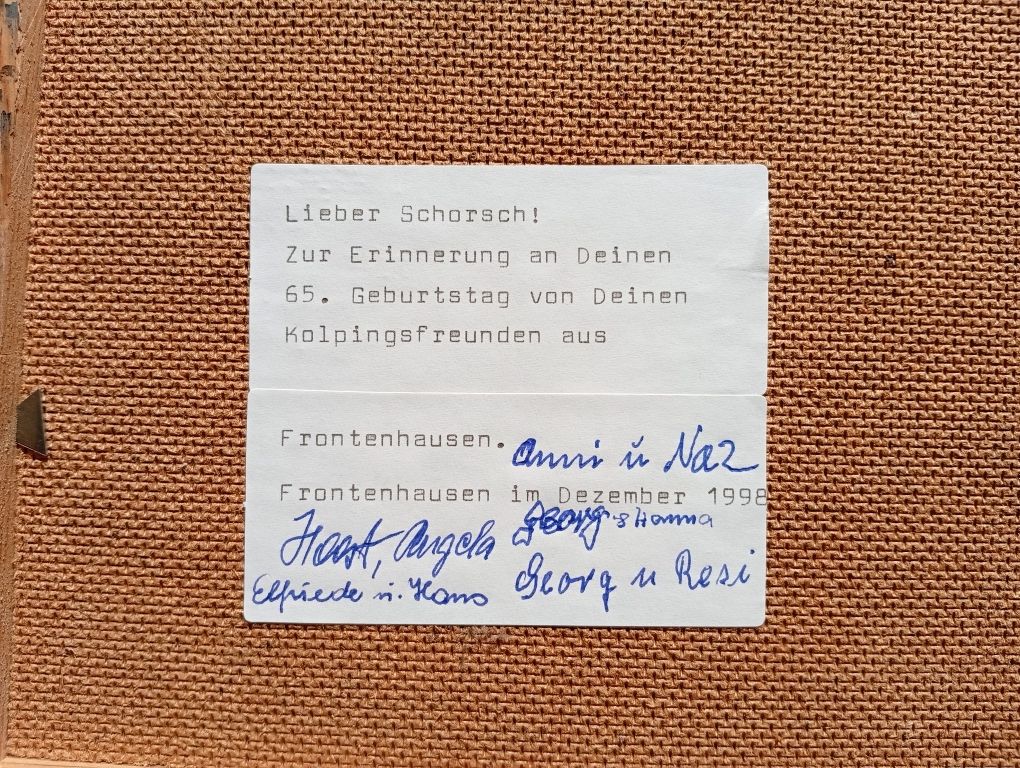 Lieber Schorsch!
Zur Erinnerung an Deinen
65. Geburtstag von Deinen
Kolpingsfreunden aus
Frontenhausen.
Anni u Naz
Frontenhausen im Dezember 1998
Georg & Hanna
Horst, Angela
Georg u Resi
Elfriede u. Hans